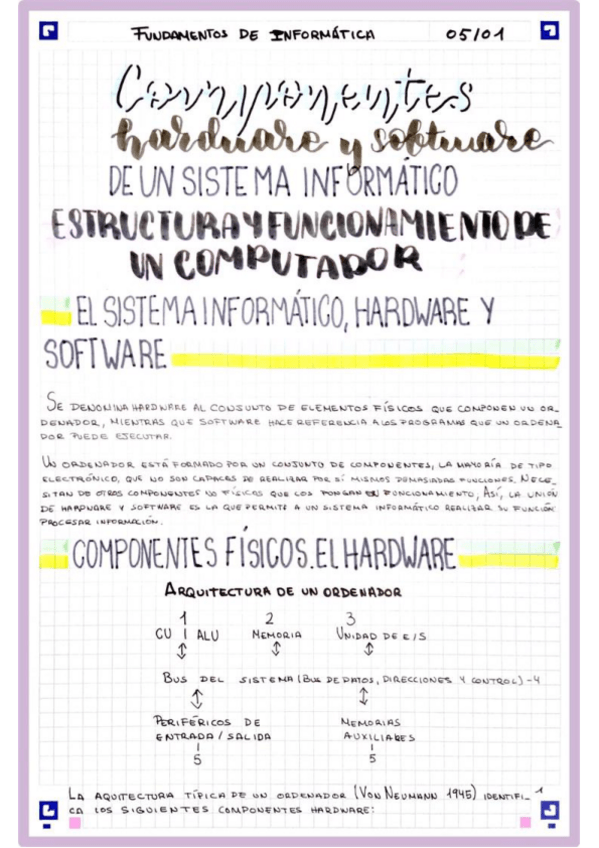 FUNDAMENTOS DE INFORMÁTICA 05/01
Componentes
hardware y software
DE UN SISTEMA INFORMÁTICO
ESTRUCTURA Y FUNCIONAMIENTO DE
UN COMPUTADOR
EL SISTEMA INFORMÁTICO, HARDWARE Y
SOFTWARE
SE DENOMINA HARDWARE AL CONJUNTO DE ELEMENTOS FÍSICOS QUE COMPONEN UN OR-
DENADOR, MIENTRAS QUE SOFTWARE HACE REFERENCIA A LOS PROGRAMAS QUE UN ORDENA
DOR PUEDE EJECUTAR.
UN ORDENADOR ESTÁ FORMADO POR UN CONJUNTO DE COMPONENTES, LA MAYORÍA DE TIPO
ELECTRÓNICO, QUE NO SON CAPACES DE REALIZAR POR SÍ MISMOS DEMASIADAS FUNCIONES. NECE-
SITAN DE OTROS COMPONENTES NO FÍSICOS QUE LOS PONGAN EN FUNCIONAMIENTO, ASÍ, LA UNIÓN
DE HARDWARE Y SOFTWARE ES LA QUE PERMITE A UN SISTEMA INFORMÁTICO REALIZAR SU FUNCIÓN:
PROCESAR INFORMACIÓN.
COMPONENTES FÍSICOS. EL HARDWARE
ARQUITECTURA DE UN ORDENADOR
1 2 3
CU | ALU MEMORIA UNIDAD DE E/S
BUS DEL SISTEMA (BUS DE DATOS, DIRECCIONES Y CONTROL) - 4
PERIFÉRICOS DE MEMORIAS
ENTRADA / SALIDA AUXILIARES
5 5
LA AQUITECTURA TÍPICA DE UN ORDENADOR (VON NEUMANN 1945) IDENTIFI- 1
CA LOS SIGUIENTES COMPONENTES HARDWARE: